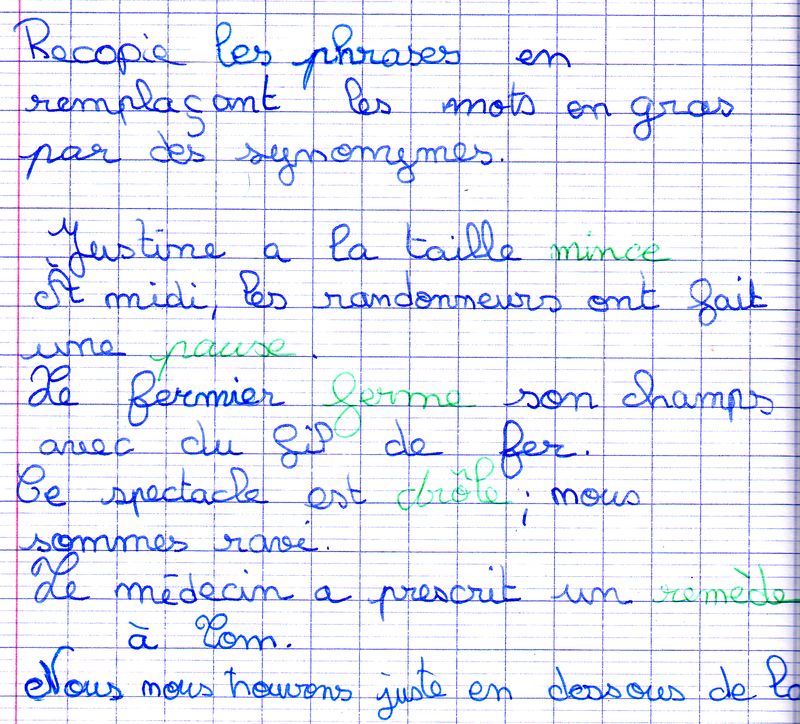 Recopie les phrases en
remplaçant les mots en gras
par des synonymes.
Justine a la taille mince
À midi, les randonneurs ont fait
une pause.
Le fermier ferme son champs
avec du fil de fer.
Ce spectacle est drôle ; nous
sommes ravi.
Le médecin a prescrit un remède
à Tom.
Nous nous trouvons juste en dessous de la